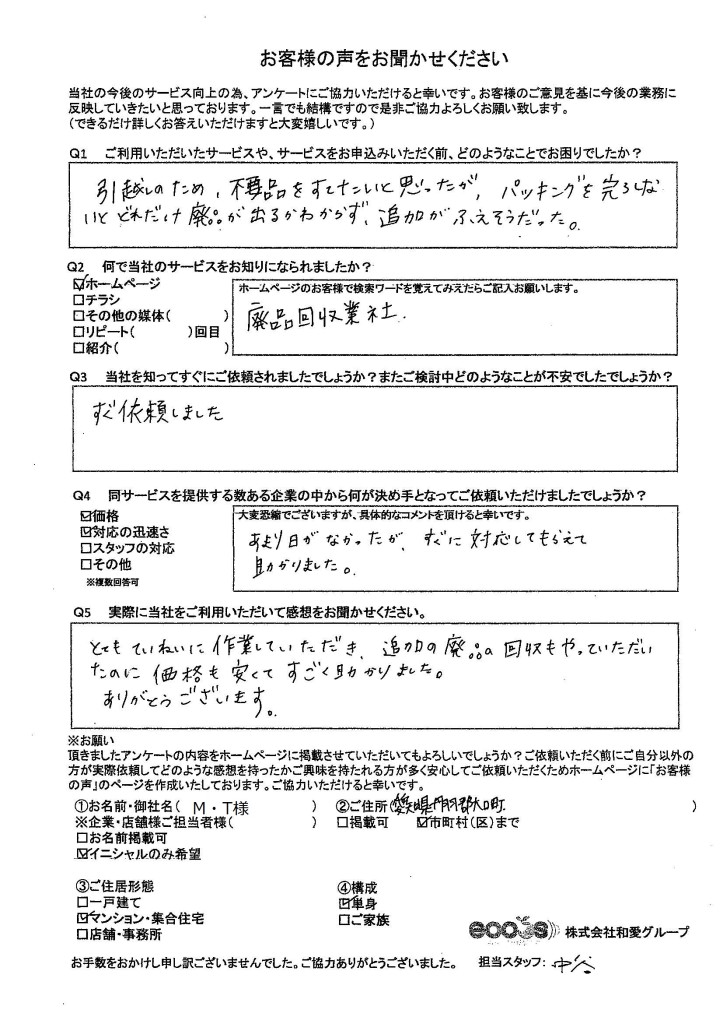 お客様の声をお聞かせください
当社の今後のサービス向上の為、アンケートにご協力いただけると幸いです。お客様のご意見を基に今後の業務に
反映していきたいと思っております。一言でも結構ですので是非ご協力よろしくお願い致します。
(できるだけ詳しくお答えいただけますと大変嬉しいです。)
Q1 ご利用いただいたサービスや、サービスをお申込みいただく前、どのようなことでお困りでしたか?
引越しのため、不要品をすてたいと思ったが、パッキングを完了しな
いとどれだけ廃品が出るかわからず、追加がふえそうだった。
Q2 何で当社のサービスをお知りになられましたか?
☑ホームページ
□チラシ
□その他の媒体( )
□リピート( )回目
□紹介( )
ホームページのお客様で検索ワードを覚えてみえたらご記入お願いします。
廃品回収業社.
Q3 当社を知ってすぐにご依頼されましたでしょうか?またご検討中どのようなことが不安でしたでしょうか?
すぐ依頼しました
Q4 同サービスを提供する数ある企業の中から何が決め手となってご依頼いただけましたでしょうか?
☑価格
☑対応の迅速さ
□スタッフの対応
□その他
※複数回答可
大変恐縮でございますが、具体的なコメントを頂けると幸いです。
あまり日がなかったが、すぐに対応してもらえて
助かりました。
Q5 実際に当社をご利用いただいて感想をお聞かせください。
とてもていねいに作業していただき、追加の廃品の回収もやっていただい
たのに価格も安くてすごく助かりました。
ありがとうございます。
※お願い
頂きましたアンケートの内容をホームページに掲載させていただいてもよろしいでしょうか?ご依頼いただく前にご自分以外の
方が実際依頼してどのような感想を持ったかご興味を持たれる方が多く安心してご依頼いただくためホームページに「お客様
の声」のページを作成いたしております。ご協力いただけると幸いです。
①お名前・御社名( M・T様 ) ②ご住所(愛知県丹羽郡大口町 )
※企業・店舗様ご担当者様( ) □掲載可 ☑市町村(区)まで
□お名前掲載可
☑イニシャルのみ希望
③ご住居形態
□一戸建て
☑マンション・集合住宅
□店舗・事務所
④構成
☑単身
□ご家族
eco 株式会社和愛グループ
お手数をおかけし申し訳ございませんでした。ご協力ありがとうございました。 担当スタッフ: 中谷